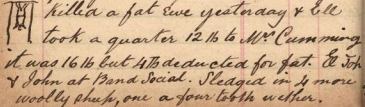 Killed a fat ewe yesterday & Ell
took a quarter 12 lb to Mrs Cumming
it was 16 lb but 4 lb deducted for fat. Ell Joh
& John at Band Social. Sledged in 4 more
woolly sheep, one a four tooth wether.